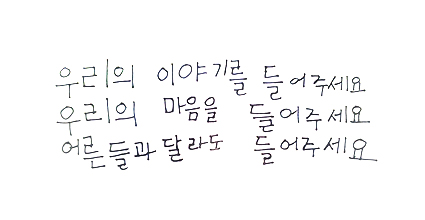 우리의 이야기를 들어주세요
우리의 마음을 들어주세요
어른들과 달라도 들어주세요